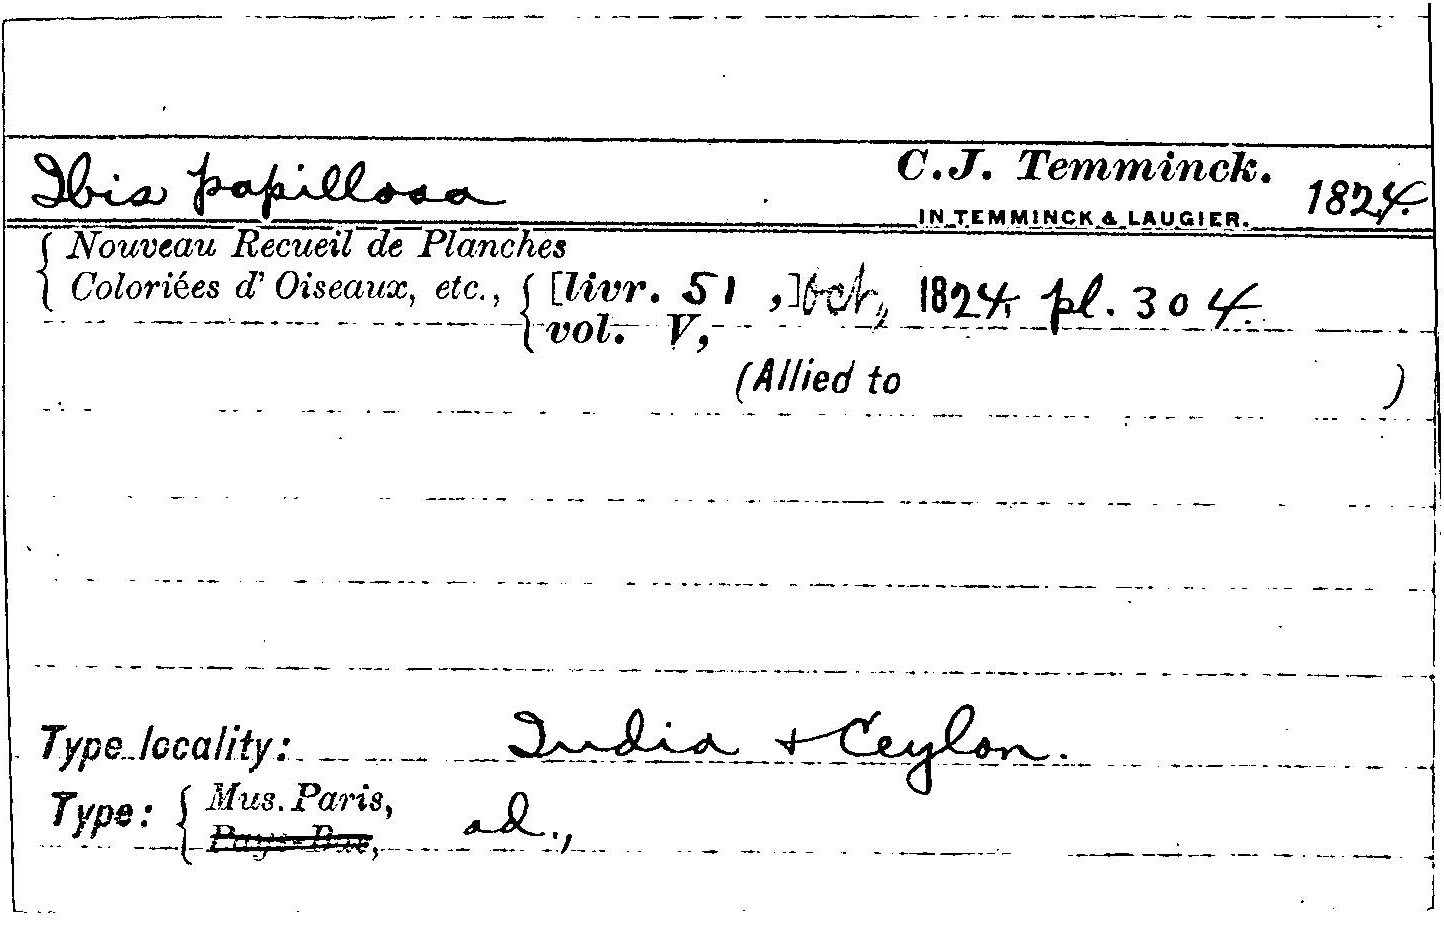 Ibis papillosa C.J. Temminck. 1824.
IN TEMMINCK & LAUGIER.
{ Nouveau Recueil de Planches
Coloriées d' Oiseaux, etc., { [livr. 51 ,] Oct., 1824, pl. 304.
vol. V,
(Allied to )
Type locality: India + Ceylon.
Type: { Mus. Paris, ad.,
Pays-Bas,